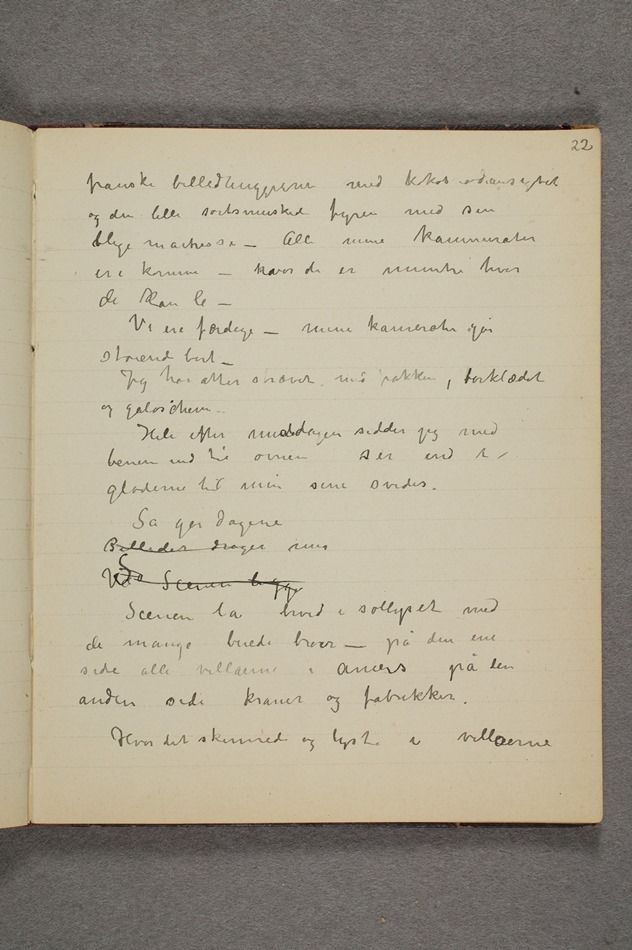 22
franske billedhuggeren med kokotteansigtet
og den lille sortsmuskede fyren med sin
blege maitresse – Alle mine kammerater
ere komne – hvor de er muntre hvor
de kan le –
Vi ere færdige – mine kamerater går
støiend bort –
Jeg har atter frakken, tørklædet
og galoscherne –
Hele efter middagen sidder jeg med
benene ind til ovnen ser ind i
gløderne til min sine svides.
Så går dagene
Billeder drager mig
Scenen ligge
Scenen lå hvid i sollyset med
de mange brede broer – på den ene
side alle villaerne i på den
anden side kraner og fabrikker.
Hvor det skinnede og lyste i villaerne